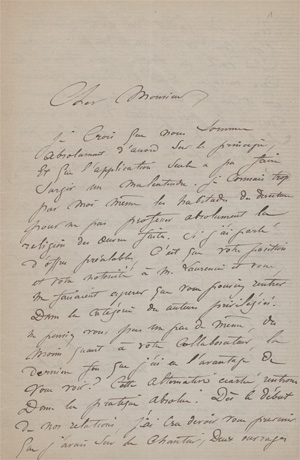 1
Cher Monsieur,
Je crois que nous sommes
absolument d'accord sur le principe,
et que l'application seule a pu faire
surgir un malentendu. Je connais trop
par moi même les habitudes du
pour ne pas professer absolument la
religion des Si j'ai parlé
d'offre préalable, c'est que votre position
et votre notoriété à M. et vous
me faisaient espérer que vous pouviez rentrer
dans la catégorie des auteurs privilégiés.
Ne pensiez vous pas un peu de même, du
moins quant à votre collaborateur, la
dernière fois que j'ai eu l'avantage de
vous voir? Cette alternative écartée rentrons
dans la pratique absolue. Dès le début
de nos relations j'ai cru devoir vous prévenir
que j'avais sur le chantier, deux ouvrages